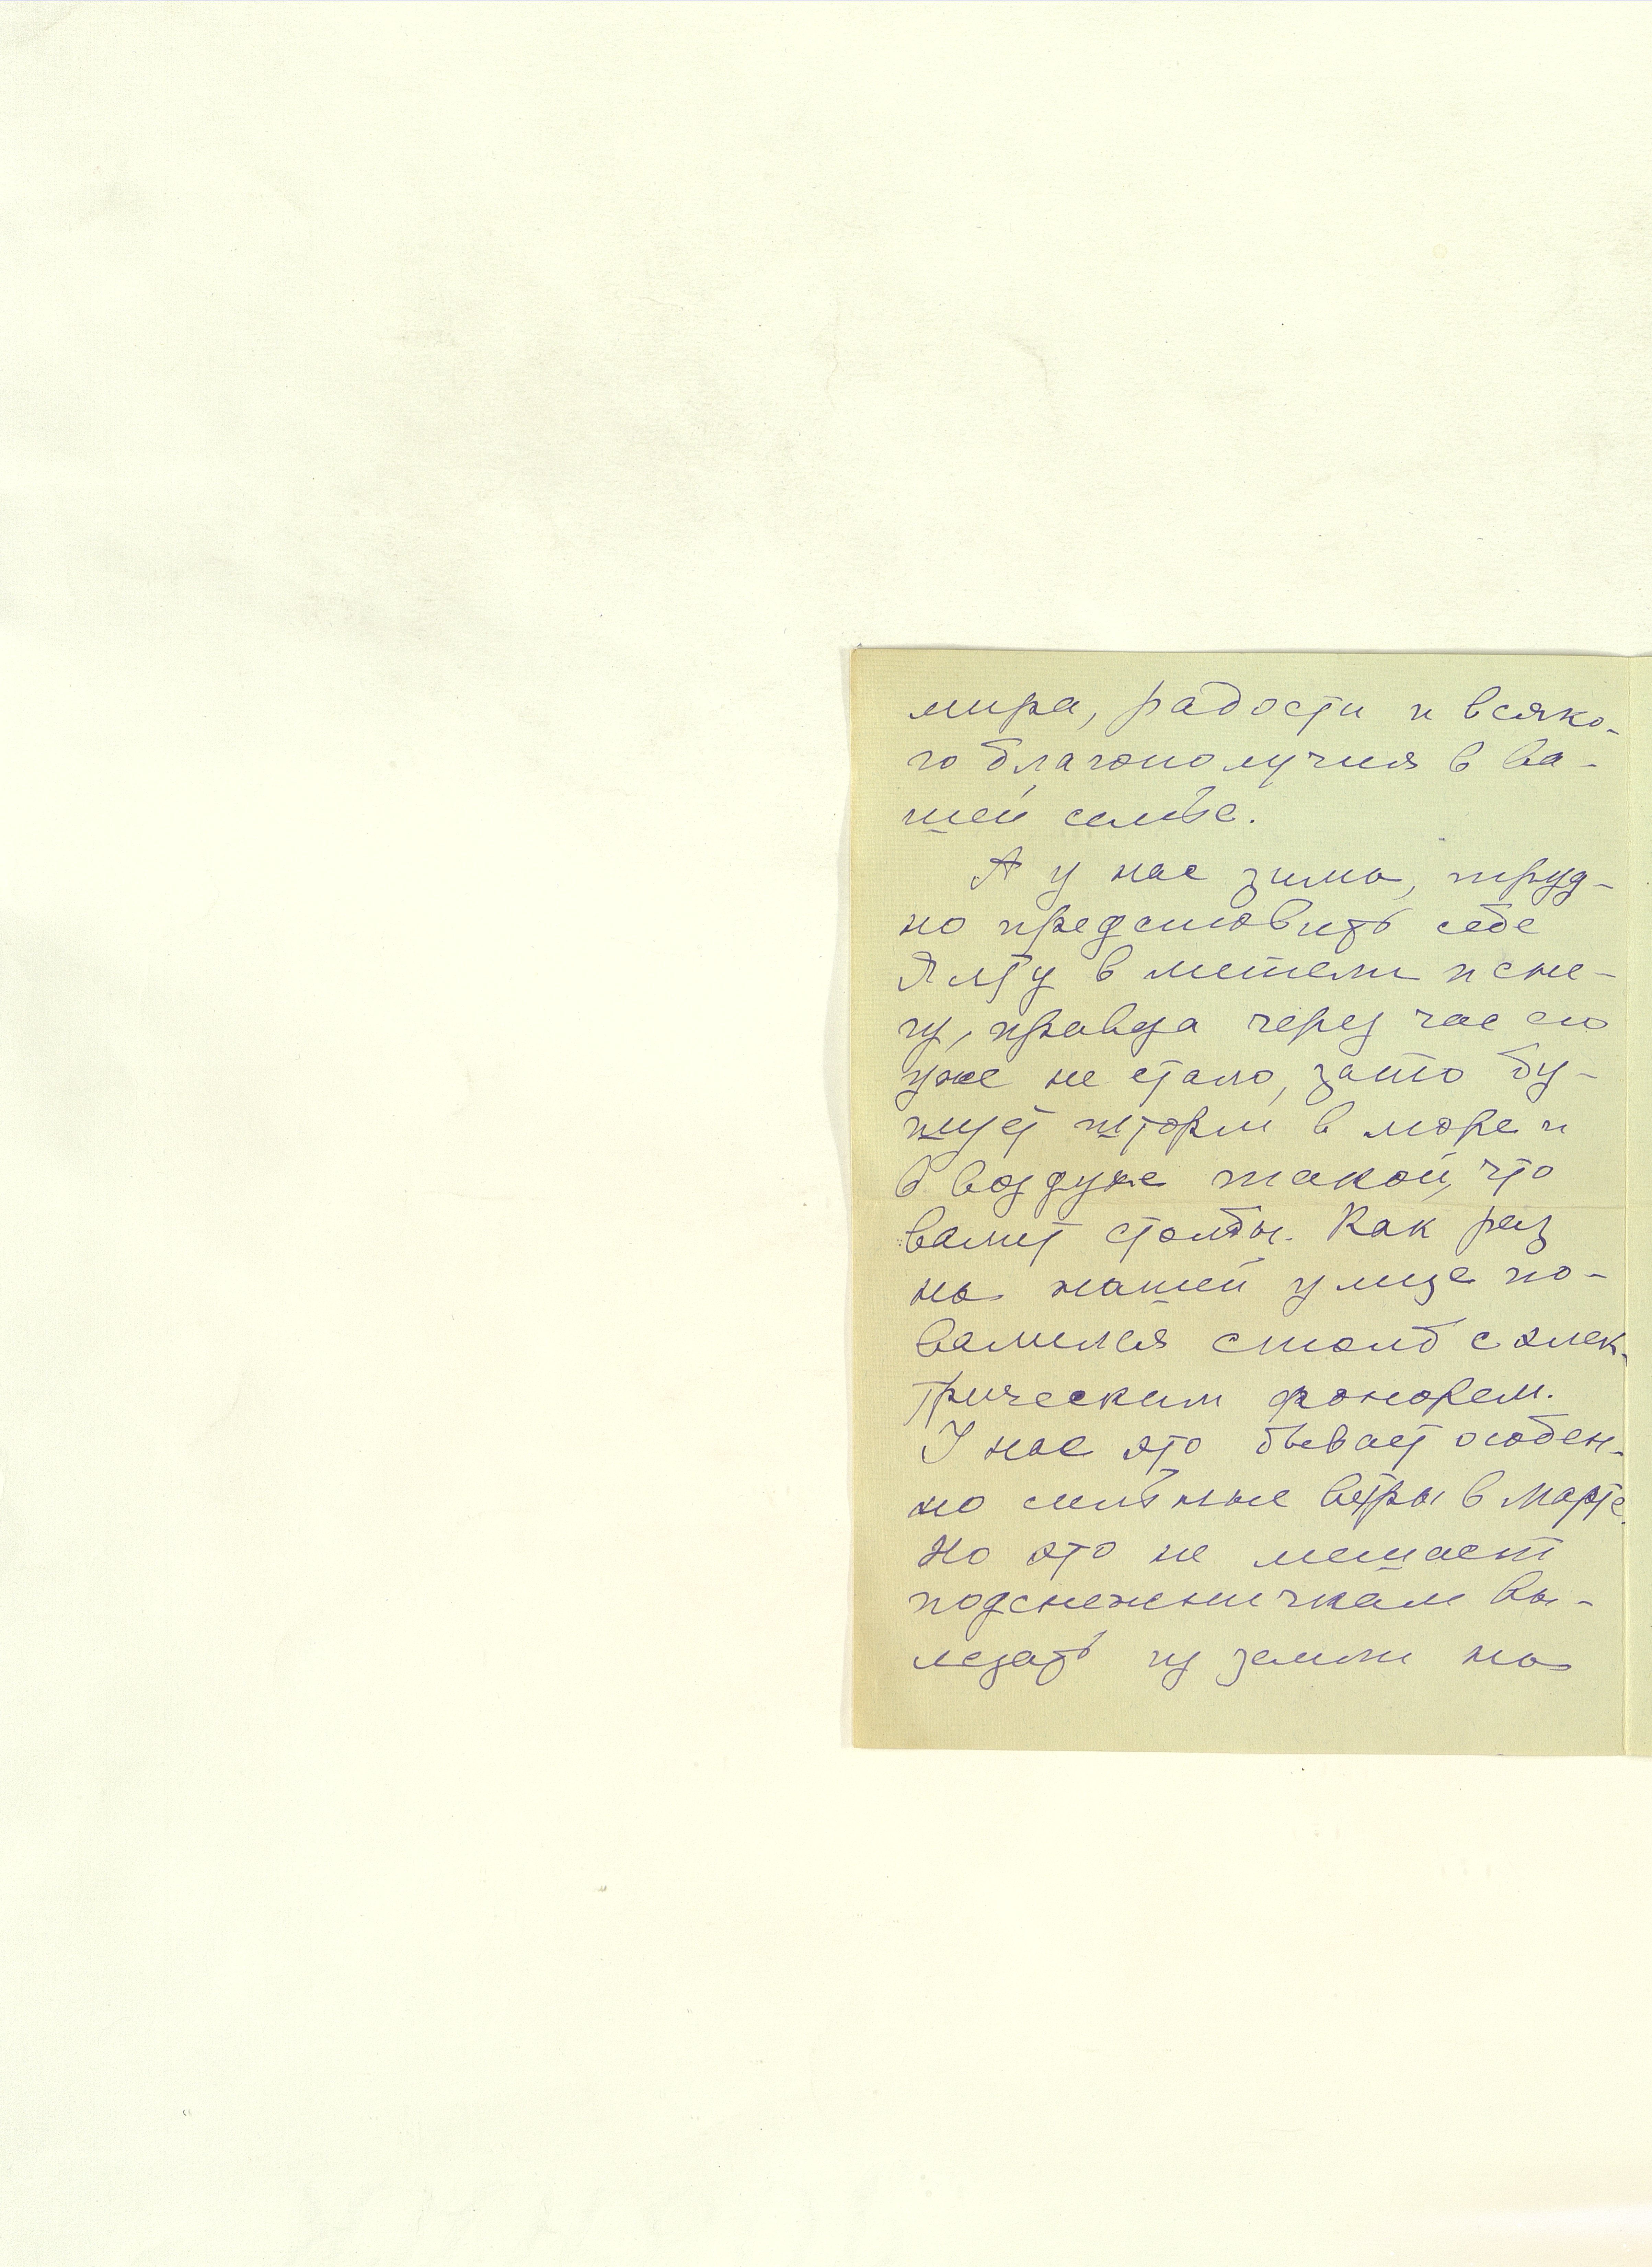 мира, радости и всяко-
го благополучия в ва-
шей семье.
А у нас зима, труд-
но представить себе
Ялту в метели и сне-
гу, правда через час его
уже не стало, зато бу-
шует шторм в море и
в воздухе такой, что
валит столбы. Как раз
на нашей улице по-
валился столб с элек-
трическим фонарем.
У нас это бывает особен-
но сильные ветры в марте.
Но это не мешает
подснежничкам вы-
лезать из земли на